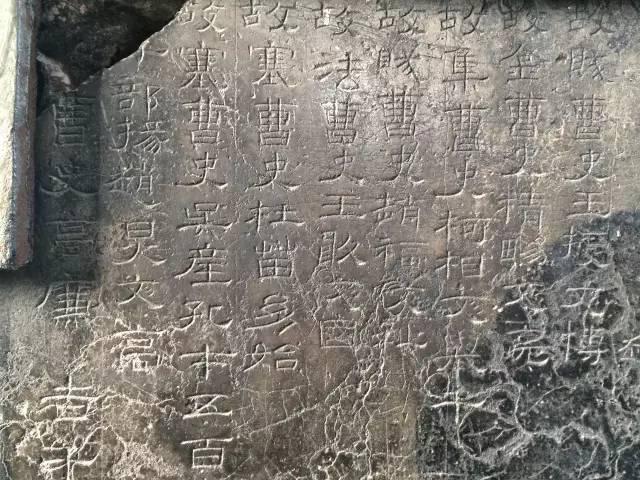 故賊曹史王授文博
故金曹史精暢文亮
故集曹史柯相文舉千
故賊曹史趙福文祉
故法曹史王敢文國
故塞曹史杜苗幼始
故塞曹史吳產孔才五百
部掾趙炅文高
曹史高廉 吉千